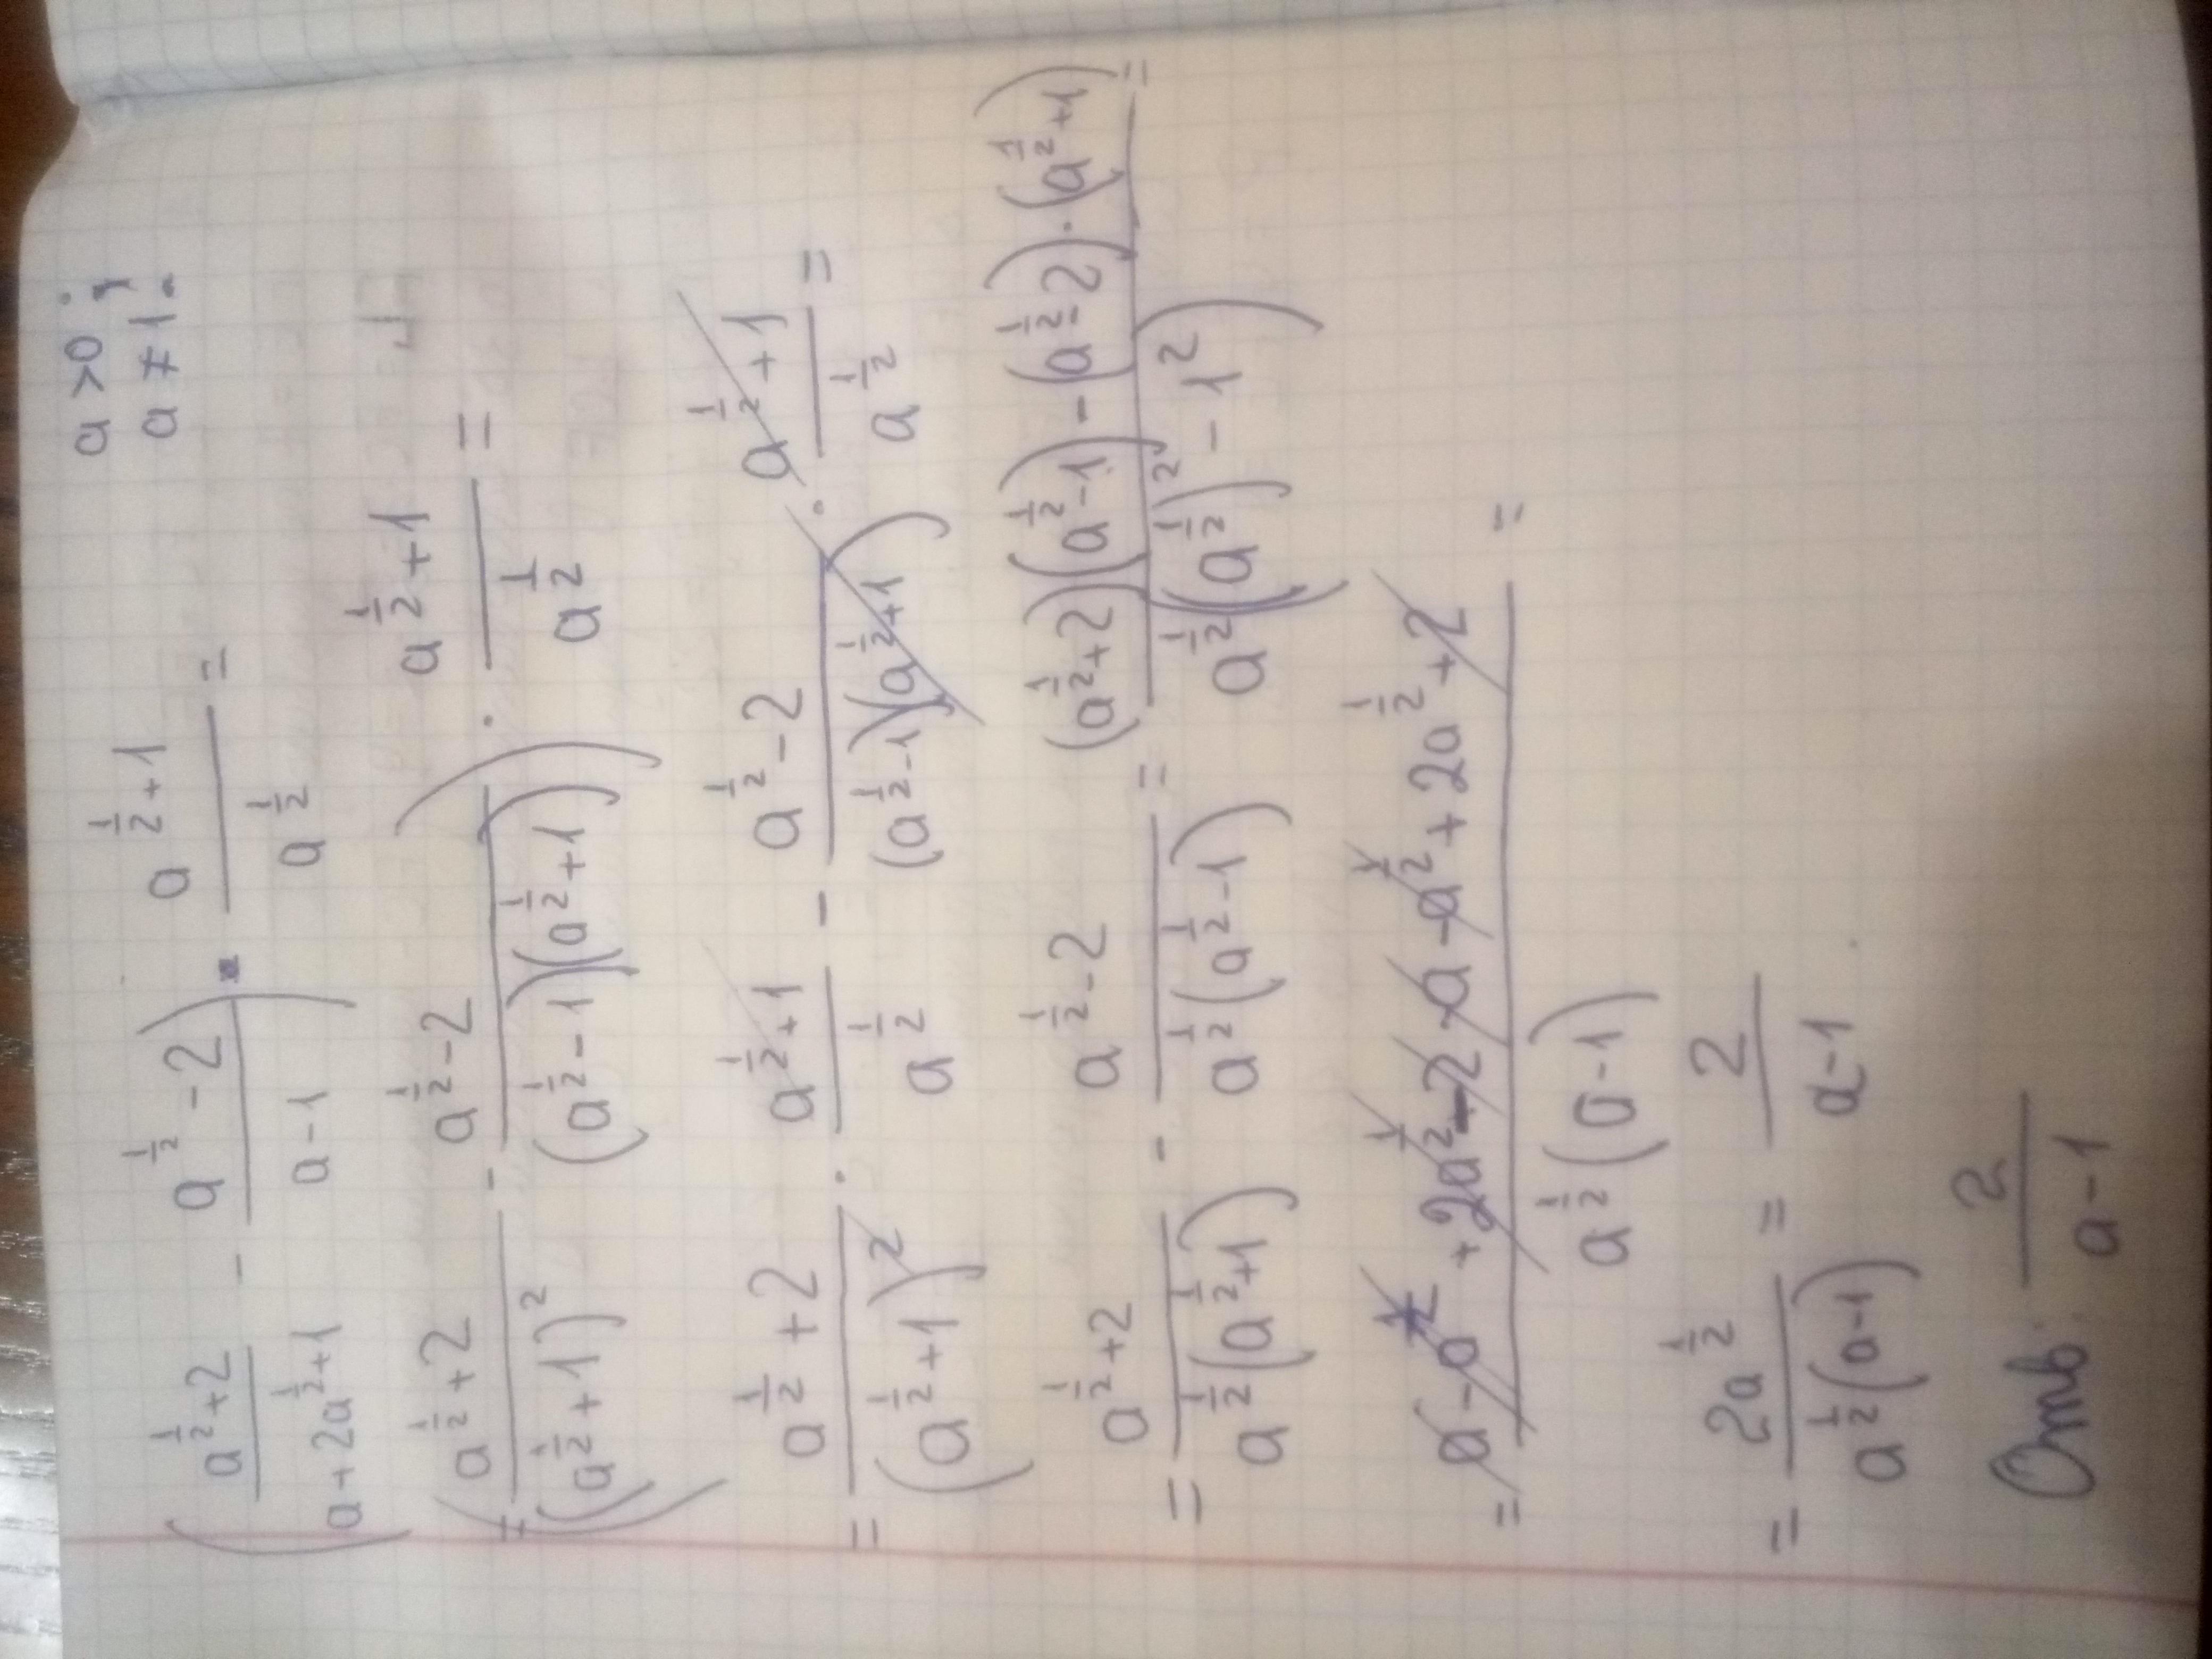 a > 0;
a ≠ 1.
((a^(1/2) + 2)/(a + 2a^(1/2) + 1) − (a^(1/2) − 2)/(a − 1)) · (a^(1/2) + 1)/a^(1/2) =
= ((a^(1/2) + 2)/((a^(1/2) + 1)^2) − (a^(1/2) − 2)/((a^(1/2) − 1)(a^(1/2) + 1))) · (a^(1/2) + 1)/a^(1/2) =
= (a^(1/2) + 2)/(a^(1/2) + 1)^2 · (a^(1/2) + 1)/a^(1/2) − (a^(1/2) − 2)/((a^(1/2) − 1)(a^(1/2) + 1)) · (a^(1/2) + 1)/a^(1/2) =
= (a^(1/2) + 2)/(a^(1/2)(a^(1/2) + 1)) − (a^(1/2) − 2)/(a^(1/2)(a^(1/2) − 1)) = ((a^(1/2) + 2)(a^(1/2) − 1) − (a^(1/2) − 2) · (a^(1/2) + 1))/(a^(1/2)((a^(1/2))^2 − 1^2)) =
= (a − a^(1/2) + 2a^(1/2) − 2 − a − a^(1/2) + 2a^(1/2) + 2)/(a^(1/2)(a − 1)) =
= 2a^(1/2)/(a^(1/2)(a − 1)) = 2/(a − 1)
Отв: 2/(a − 1)